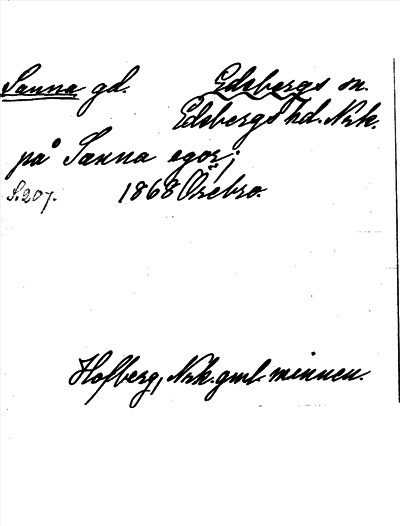 Sanna gd. Edsbergs sn.
Edsbergs hd. Nrk.
på Sanna egor;
S. 207. 1868 Örebro.
Hofberg, Nrk. gml. minnen.